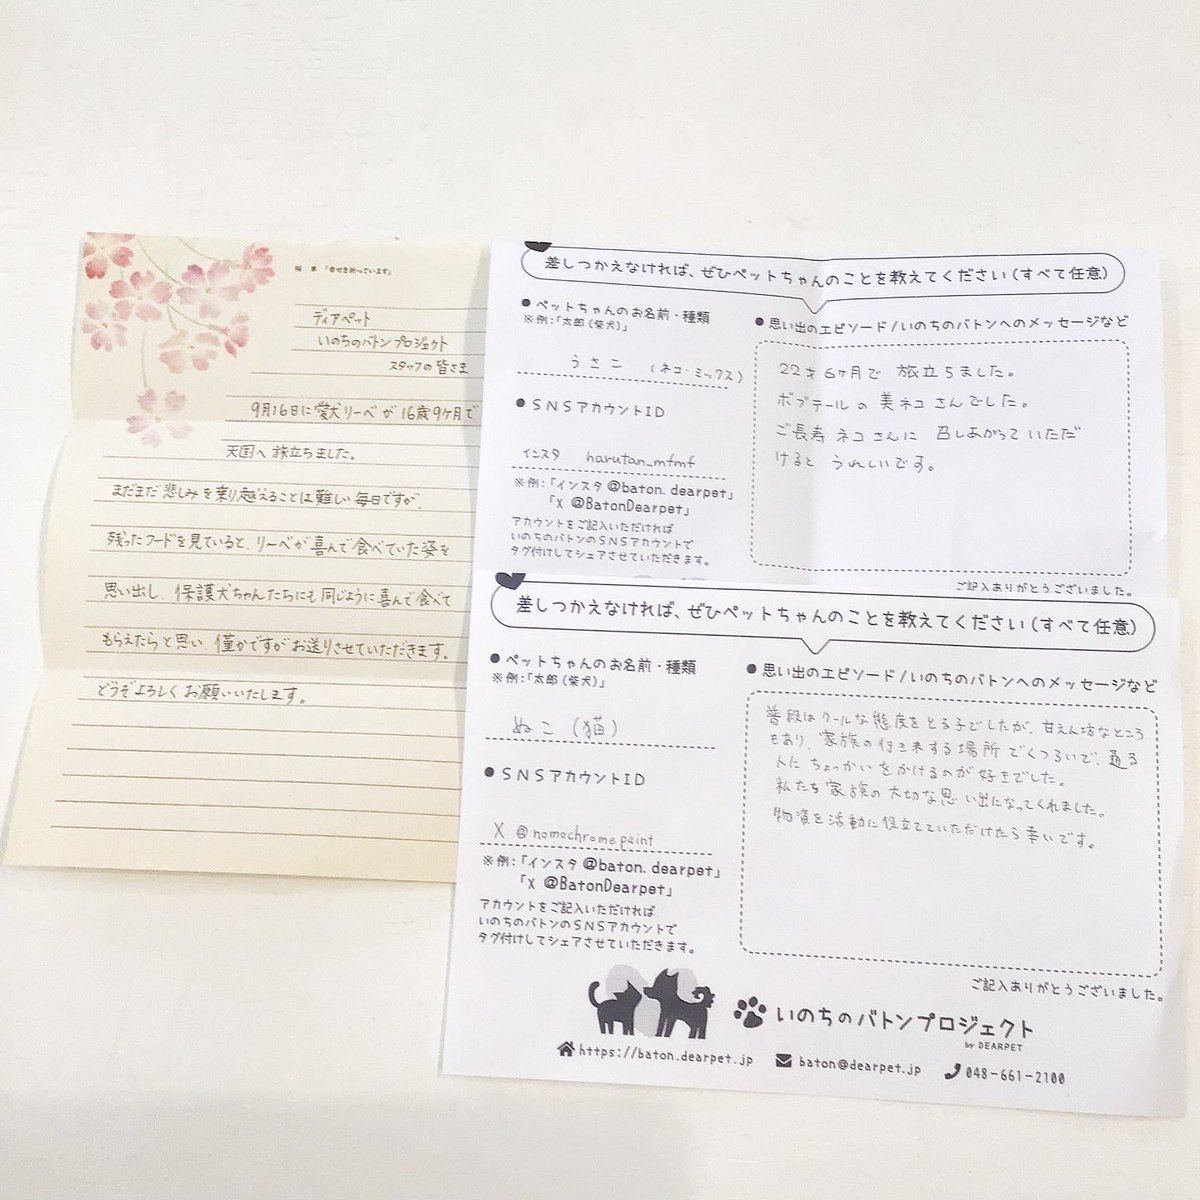 桜 草 「幸せを祈っています」
ディアペット
いのちのバトンプロジェクト
スタッフの皆さま
9月16日に愛犬リーベが16歳9ヶ月で
天国へ旅立ちました。
まだまだ悲しみを乗り越えることは難しい毎日ですが、
残ったフードを見ていると、リーベが喜んで食べていた姿を
思い出し、保護犬ちゃんたちにも同じように喜んで食べて
もらえたらと思い、僅かですがお送りさせていただきます。
どうぞよろしくお願いいたします。
差しつかえなければ、ぜひペットちゃんのことを教えてください(すべて任意)
●ペットちゃんのお名前・種類
※例:「太郎(柴犬)」
うさこ (ネコ・ミックス)
●SNSアカウントID
インスタ harutan_mfmf
※例:「インスタ @baton.dearpet」
「X @BatonDearpet」
アカウントをご記入いただければ
いのちのバトンのSNSアカウントで
タグ付けしてシェアさせていただきます。
●思い出のエピソード/いのちのバトンへのメッセージなど
22才6ヶ月で 旅立ちました。
ボブテールの美ネコさんでした。
ご長寿ネコさんに 召しあがっていただ
けると うれしいです。
ご記入ありがとうございました。
差しつかえなければ、ぜひペットちゃんのことを教えてください(すべて任意)
●ペットちゃんのお名前・種類
※例:「太郎(柴犬)」
ぬこ(猫)
●SNSアカウントID
X @nomochromepaint
※例:「インスタ @baton.dearpet」
「X @BatonDearpet」
アカウントをご記入いただければ
いのちのバトンのSNSアカウントで
タグ付けしてシェアさせていただきます。
●思い出のエピソード/いのちのバトンへのメッセージなど
普段はクールな態度をとる子でしたが、甘えん坊なところ
もあり、家族の行き来する場所でくつろいで、通る
人にちょっかいをかけるのが好きでした。
私たち家族の大切な思い出になってくれました。
物資を活動に役立てていただけたら幸いです。
ご記入ありがとうございました。
いのちのバトンプロジェクト
by DEARPET
https://baton.dearpet.jp
baton@dearpet.jp
048-661-2100